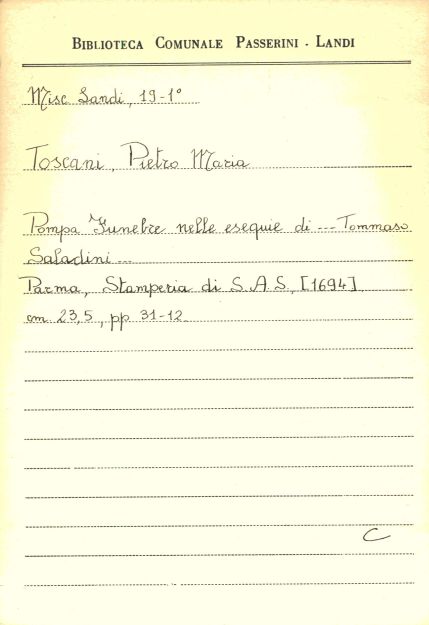 BIBLIOTECA COMUNALE PASSERINI - LANDI
Misc Landi, 19-1°
Toscani, Pietro Maria
Pompa Funebre nelle esequie di --- Tommaso
Saladini ---
Parma, Stamperia di S.A.S., [1694]
cm 23,5, pp 31-12
C